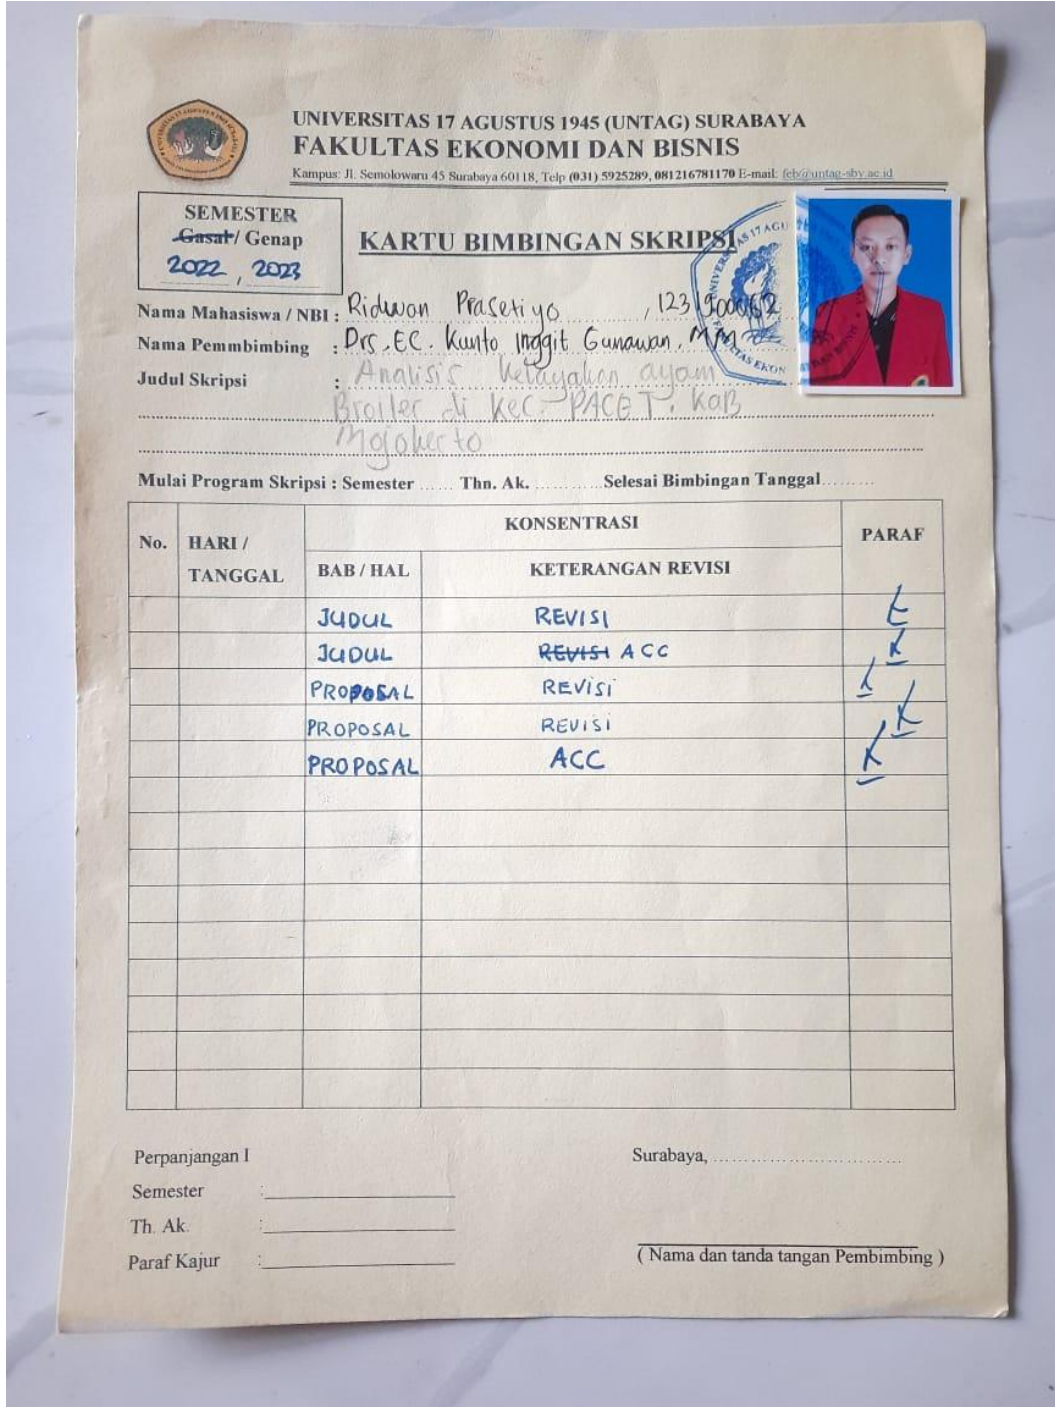 UNIVERSITAS 17 AGUSTUS 1945 (UNTAG) SURABAYA
FAKULTAS EKONOMI DAN BISNIS
Kampus: Jl. Semolowaru 45 Surabaya 60118, Telp (031) 5925289, 081216781170 E-mail: feb@untag-sby.ac.id
SEMESTER
Gasal / Genap
2022, 2023
KARTU BIMBINGAN SKRIPSI
Nama Mahasiswa / NBI : Ridwan Prasetiyo, 1231900062
Nama Pemmbimbing : Drs. EC. Kunto Inggit Gunawan, MM
Judul Skripsi : Analisis Kelayakan ayam
Broiler di Kec. PACET. Kab
Mojokerto
Mulai Program Skripsi : Semester ...... Thn. Ak. ............ Selesai Bimbingan Tanggal.........
No. HARI / TANGGAL KONSENTRASI PARAF
BAB / HAL KETERANGAN REVISI
JUDUL REVISI
JUDUL REVISI ACC
PROPOSAL REVISI
PROPOSAL REVISI
PROPOSAL ACC
Perpanjangan I Surabaya, ..............................
Semester :
Th. Ak. :
Paraf Kajur :
( Nama dan tanda tangan Pembimbing )